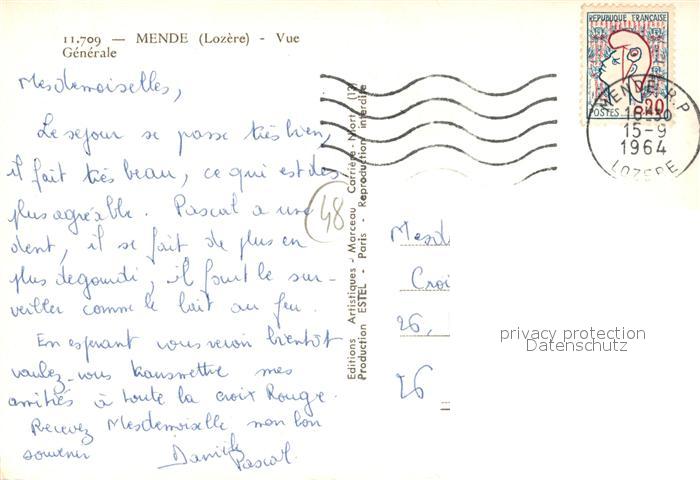 11.709 — MENDE (Lozère) - Vue
Générale
Mesdemoiselles,
Le sejour se passe très bien,
il fait très beau, ce qui est des
plus agréable. Pascal a une
dent, il se fait de plus en
plus degourdi, il faut le sur-
veiller comme le lait au feu.
En esperant vous revoir bientôt
voulez-vous transmettre mes
amitiés à toute la croix Rouge.
Recevez Mesdemoiselle mon bon
souvenir Danièle
Pascal.
(48)
Editions Artistiques - Marceau Carrière - Niort (12)
Production ESTEL - Paris - Reproduction interdite
REPUBLIQUE FRANCAISE
POSTES 0,20
MENDE R.P
16-30
15-9
1964
LOZERE
Mesd
Croi
26,
26
privacy protection
Datenschutz